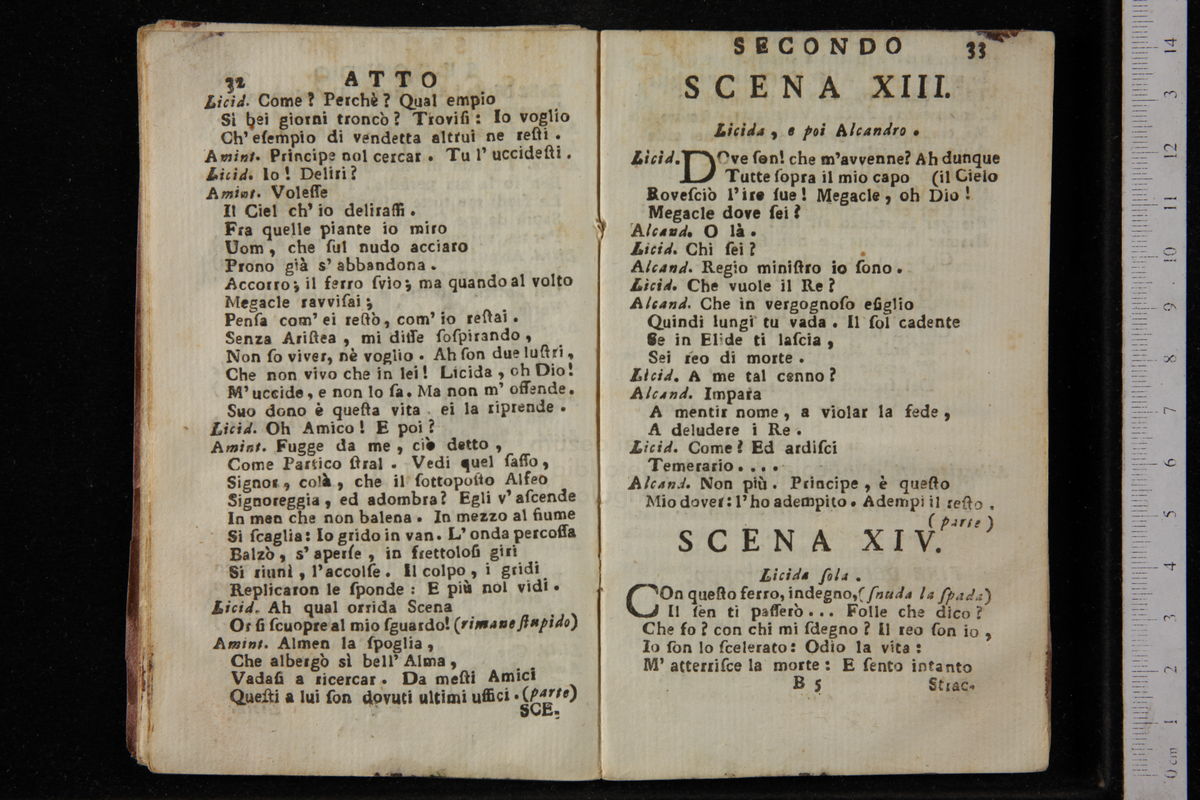 32 ATTO
Licid. Come? Perchè? Qual empio
Sì bei giorni troncò? Troviſi: Io voglio
Ch' eſempio di vendetta altrui ne reſti.
Amint. Principe nol cercar. Tu l' uccideſti.
Licid. Io! Deliri?
Amint. Voleſſe
Il Ciel ch' io deliraſſi.
Fra quelle piante io miro
Uom, che ſul nudo acciaro
Prono già s' abbandona.
Accorro; il ferro ſvio; ma quando al volto
Megacle ravviſai;
Penſa com' ei reſtò, com' io reſtai.
Senza Ariſtea, mi diſſe ſoſpirando,
Non ſo viver, nè voglio. Ah ſon due luſtri,
Che non vivo che in lei! Licida, oh Dio!
M' uccide, e non lo ſa. Ma non m' offende.
Suo dono è queſta vita ei la riprende.
Licid. Oh Amico! E poi?
Amint. Fugge da me, ciò detto,
Come Partico ſtral. Vedi quel ſaſſo,
Signor, colà, che il ſottopoſto Alfeo
Signoreggia, ed adombra? Egli v' aſcende
In men che non balena. In mezzo al fiume
Si ſcaglia: Io grido in van. L' onda percoſſa
Balzò, s' aperſe, in frettoloſi giri
Si riunì, l' accolſe. Il colpo, i gridi
Replicaron le ſponde: E più nol vidi.
Licid. Ah qual orrida Scena
Or ſi ſcuopre al mio ſguardo! (rimane ſtupido)
Amint. Almen la ſpoglia,
Che albergò sì bell' Alma,
Vadaſi a ricercar. Da meſti Amici
Queſti a lui ſon dovuti ultimi uffici. (parte)
SCE.
SECONDO 33
SCENA XIII.
Licida, e poi Alcandro.
Licid. DOve ſon! che m'avvenne? Ah dunque
Tutte ſopra il mio capo (il Cielo
Roveſciò l'ire ſue! Megacle, oh Dio!
Megacle dove ſei?
Alcand. O là.
Licid. Chi ſei?
Alcand. Regio miniſtro io ſono.
Licid. Che vuole il Re?
Alcand. Che in vergognoſo eſiglio
Quindi lungi tu vada. Il ſol cadente
Se in Elide ti laſcia,
Sei reo di morte.
Licid. A me tal cenno?
Alcand. Impara
A mentir nome, a violar la fede,
A deludere i Re.
Licid. Come? Ed ardiſci
Temerario....
Alcand. Non più. Principe, è queſto
Mio dover: l' ho adempito. Adempi il reſto.
(parte)
SCENA XIV.
Licida ſola.
COn queſto ferro, indegno, (ſnuda la ſpada)
Il ſen ti paſſerò... Folle che dico?
Che fo? con chi mi ſdegno? Il reo ſon io,
Io ſon lo ſcelerato: Odio la vita:
M' atterriſce la morte: E ſento intanto
B 5 Strac-
14
13
12
11
10
9
8
7
6
5
4
3
2
1
0 cm